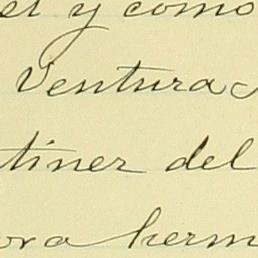 y como
Ventura
tiner del
ora herm